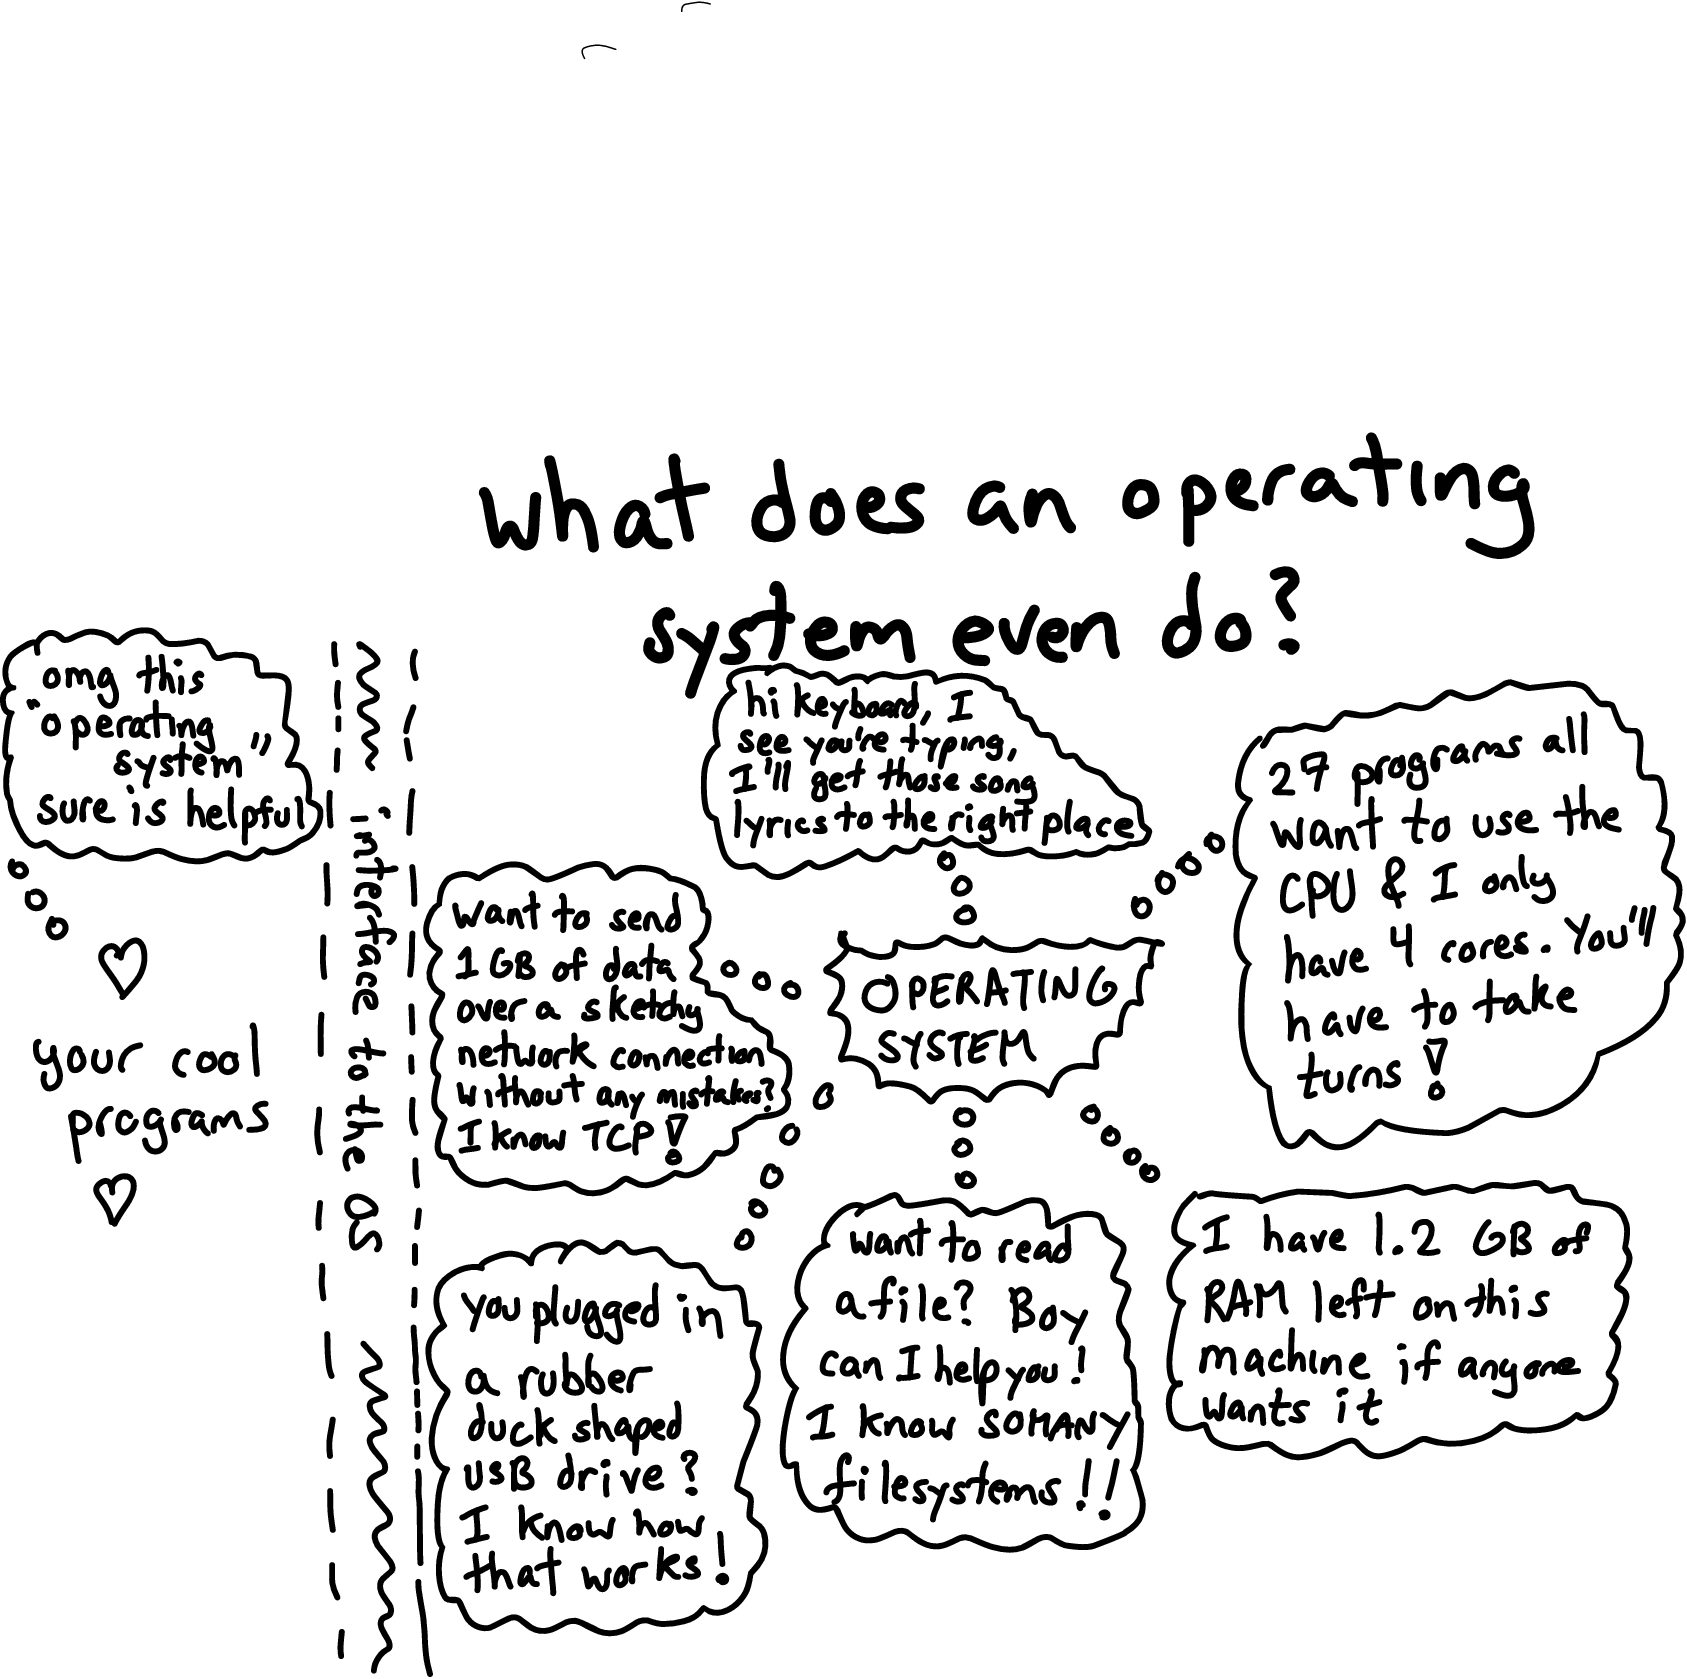 what does an operating
system even do?
omg this
"operating
system"
sure is helpful
your cool
programs
interface to the OS
hi keyboard, I
see you're typing,
I'll get those song
lyrics to the right place
27 programs all
want to use the
CPU & I only
have 4 cores. You'll
have to take
turns!
want to send
1 GB of data
over a sketchy
network connection
without any mistakes?
I know TCP!
OPERATING
SYSTEM
you plugged in
a rubber
duck shaped
USB drive?
I know how
that works!
want to read
a file? Boy
can I help you!
I know SO MANY
filesystems!!
I have 1.2 GB of
RAM left on this
machine if anyone
wants it